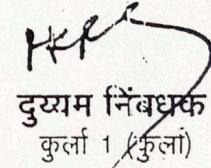 दुय्यम निंबधक
कुर्ला 1 (कुर्ला)